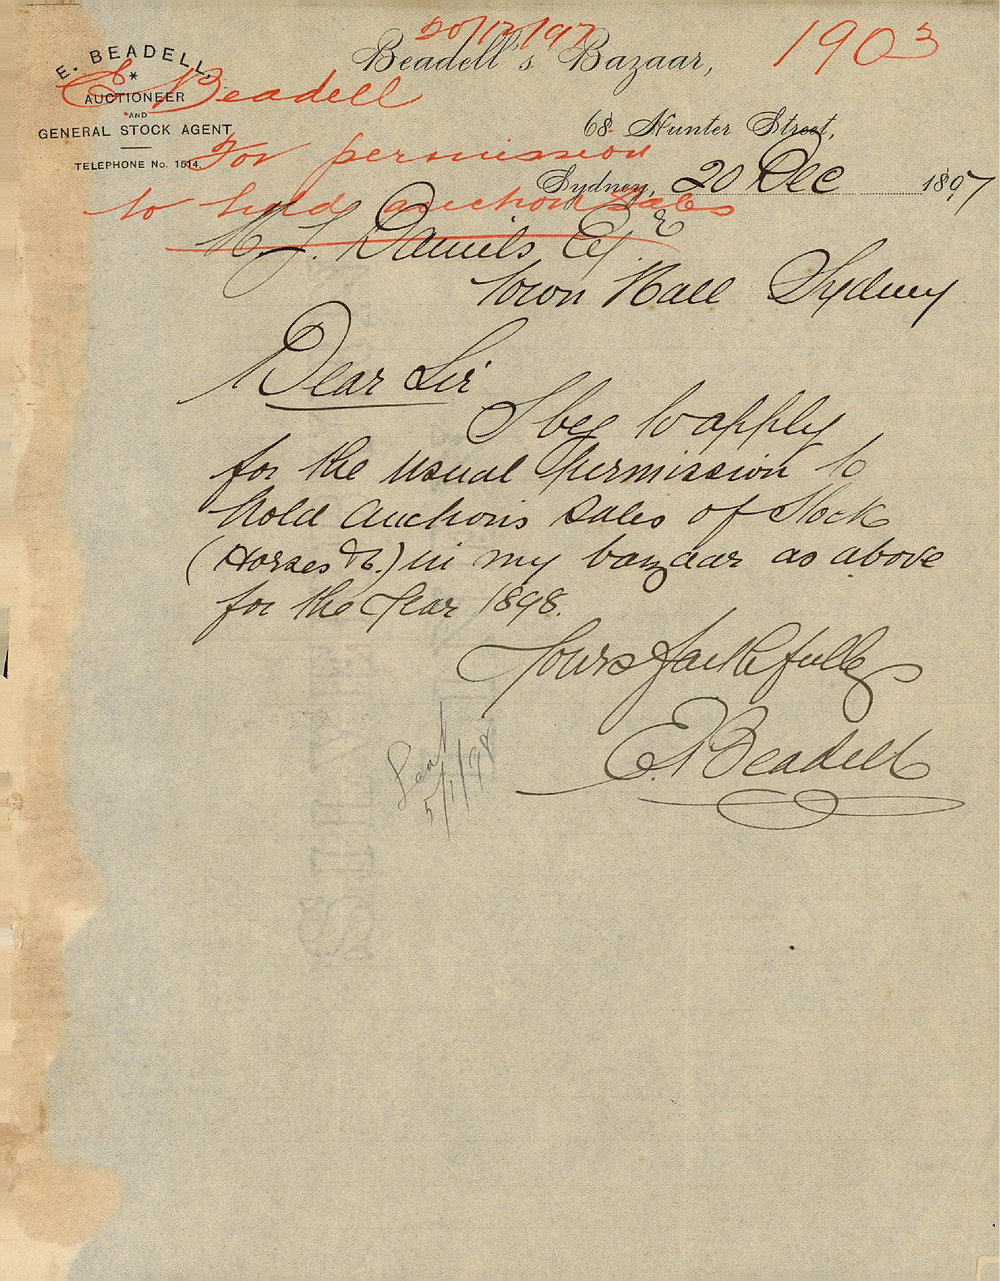 20/12/97
1903
E. BEADELL,
AUCTIONEER
AND
GENERAL STOCK AGENT.
TELEPHONE No. 1514.
Beadell's Bazaar,
68 Hunter Street,
Sydney, 20 Dec 1897
E Beadell
For permission
to hold auction sales
H. J. Daniels Esqr
Town Hall Sydney
Dear Sir
I beg to apply
for the usual permission to
hold auctions sales of Stock
(Horses &c.) in my bazaar as above
for the Year 1898.
Yours faithfully
E. Beadell
5/1/98